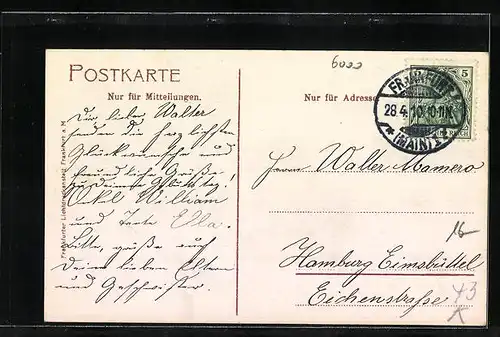 6000
POSTKARTE
Nur für Mitteilungen.
Nur für Adresse
FRANKFURT
28.4.10.10-11N.
*(MAIN)
5
Dir, lieber Walter
senden die herzlichsten
Glückwünsche und
freundliche Grüße
zu deinem Geburtstag!
Onkel William
und Tante Ella.
Bitte, grüße auch
Deine lieben Eltern
und Geschwister.
Frankfurter Lichtdruckanstalt, Frankfurt a. M.
Herrn Walter Mamero
Hamburg Eimsbüttel
Eichenstraße 43